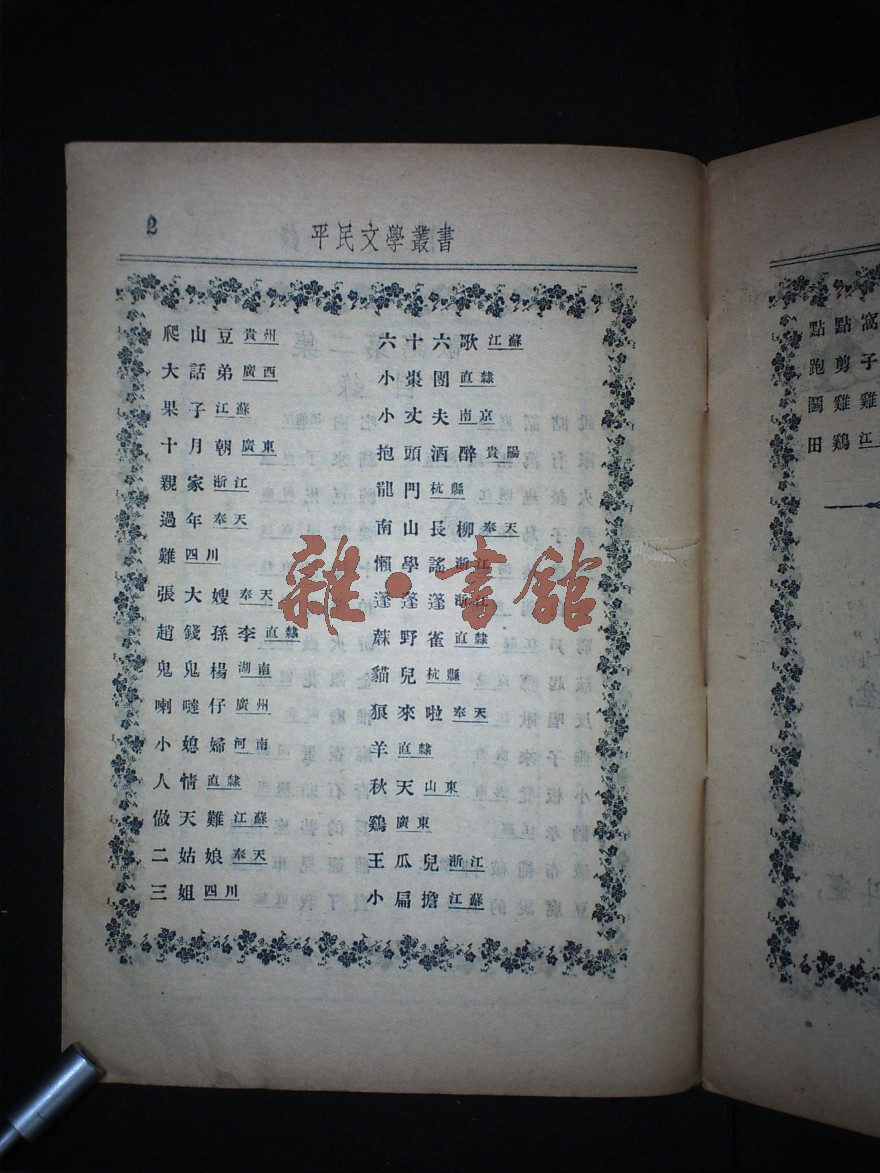 2
平民文學叢書
爬山豆貴州
大話弟廣西
果子江蘇
十月朝廣東
親家浙江
過年奉天
難四川
張大嫂奉天
趙錢孫李直隸
鬼鬼楊湖南
喇噠仔廣州
小媳婦河南
人情直隸
做天難江蘇
二姑娘奉天
三姐四川
六十六歌江蘇
小棗團直隸
小丈夫南京
抱頭酒醉貴陽
龍門杭縣
南山長柳奉天
懶學謠浙江
蓬蓬蓬浙江
蔴野雀直隸
貓兒杭縣
狼來啦奉天
羊直隸
秋天山東
鷄廣東
王瓜兒浙江
小扁擔江蘇
雜·書館
點點窩
跑剪子
鬭雞雞
田鷄江